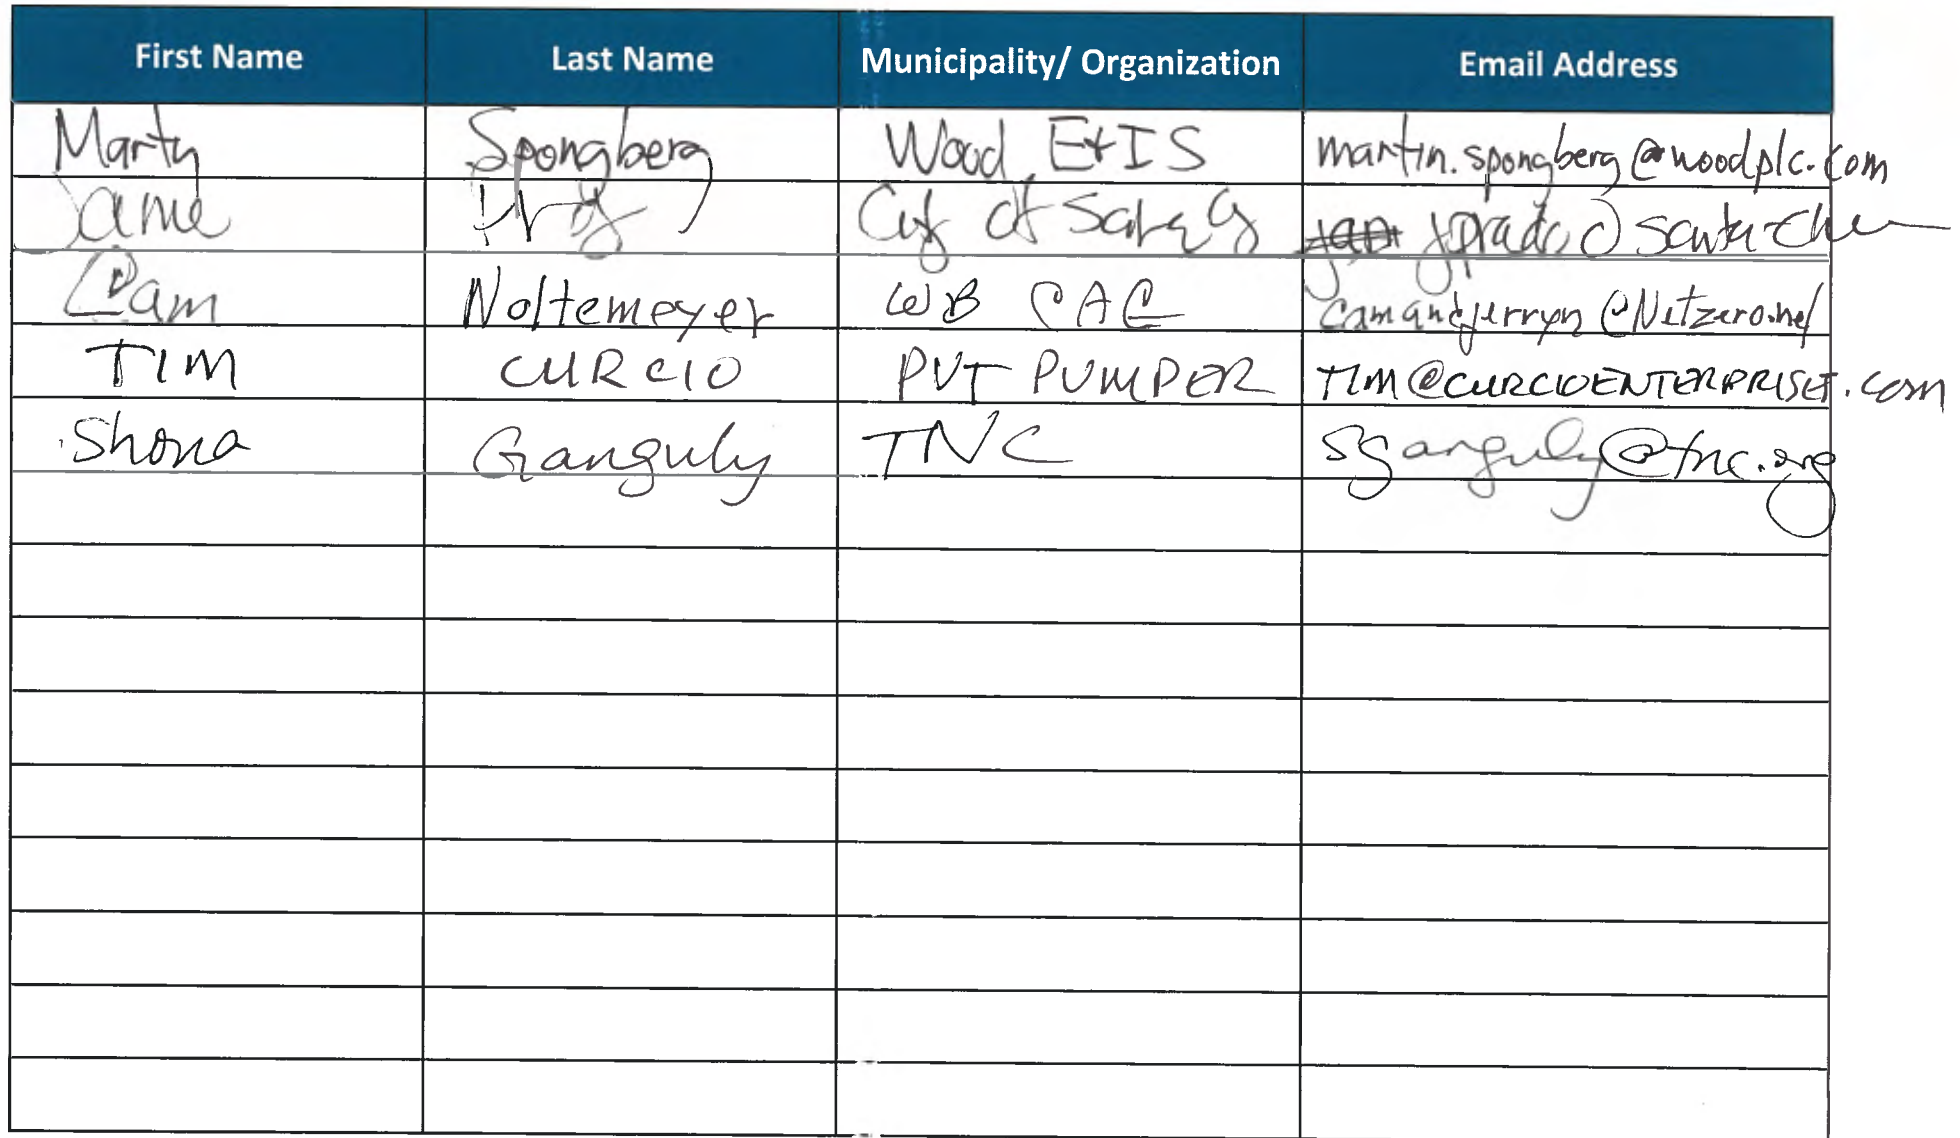 First Name Last Name Municipality/ Organization Email Address
Marty Spongberg Wood E+IS martin.spongberg@woodplc.com
City of jprado@santa-
Cam Noltemeyer WB CAC camandjerryn@Netzero.net
TIM CURCIO PVT PUMPER TIM@CURCIOENTERPRISET.com
Shona Ganguly TNC sganguly@tnc.org